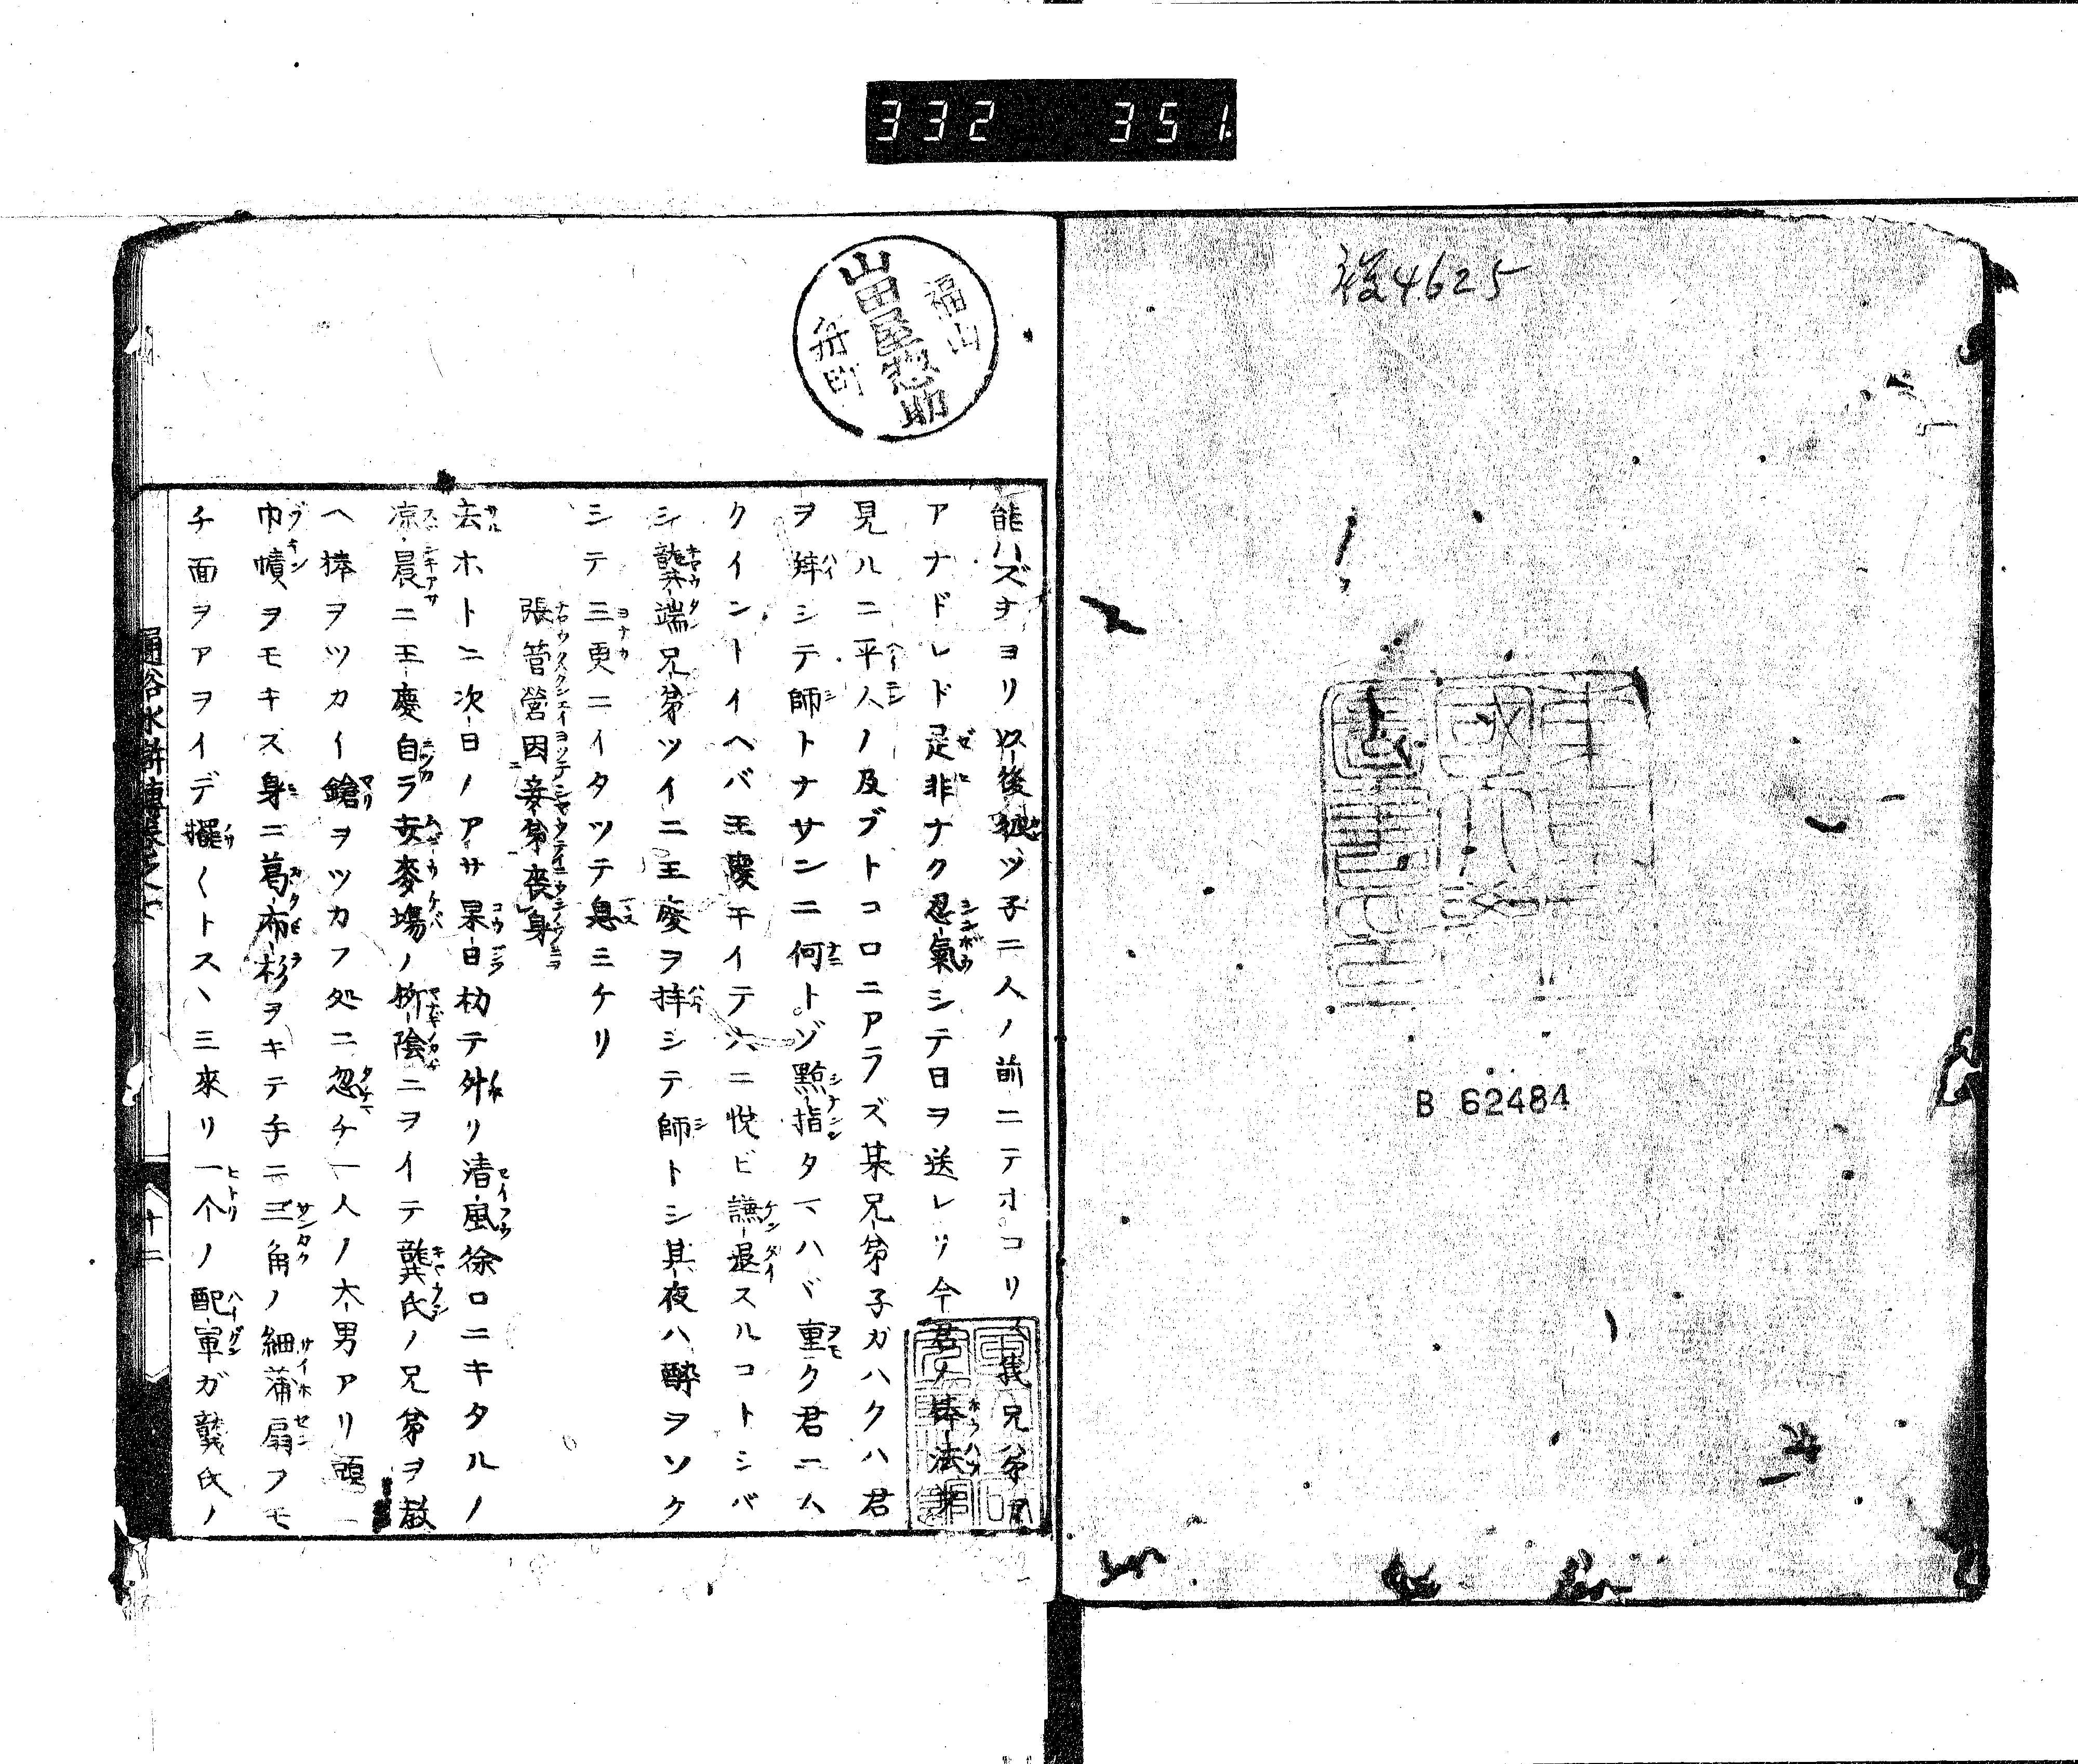 332 351
複4625
B 62484
福山
山田屋惣助
舟町
能ハズヲヨリ以後彼ツ子ニ人ノ前ニテオコリ 我兄弟
アナドレド是非ナク忍氣シテ日ヲ送レリ今君ノ棒法
見ルニ平人ノ及ブトコロニアラズ某兄弟子ガハクハ君
ヲ拜シテ師トナサンニ何トゾ點指タマハヾ重ク君ニム
クイントイヘバ王慶キイテ大ニ悦ビ謙退スルコトシバ
シ龔端兄弟ツイニ王慶ヲ拜シテ師トシ其夜ハ酔ヲツク
シテ三更ニイタツテ息ミケリ
張管營因妾弟喪身
去ホトニ次日ノアサ杲白初テ外リ清風徐ロニキタルノ
凉晨ニ王慶自ラ麥場ノ柳陰ニヲイテ龔氏ノ兄弟ヲ教
ヘ棒ヲツカイ鎗ヲツカフ処ニ忽チ一人ノ大男アリ頭ニ
巾幘ヲモキズ身ニ葛布衫ヲキテ手ニ三角ノ細蒲扇ヲモ
チ面ヲアヲイデ擺〱トスヽミ來リ一个ノ配軍ガ龔氏ノ
通俗水滸傳卷之
十二